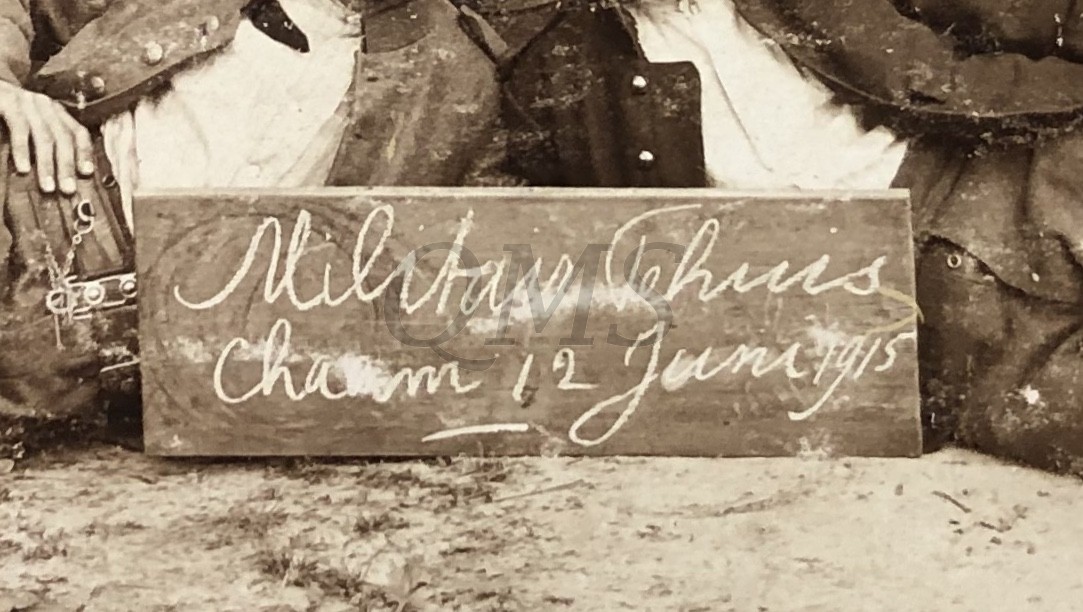 Militair Thuis
Chaam 12 Juni 1915
QMS